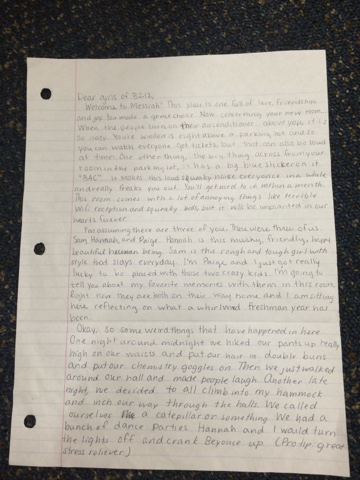 Dear girls of B212,
Welcome to Messiah! This year is one full of love, friendships
and joy. You made a great choice. Now, concerning your new room.
When the people turn on their air conditioner above you, it is
so noisy. Your window is right above a parking lot and so
you can watch everyone get tickets, but that can also be loud
at times. One other thing, the big thing across from your
room in the parking lot, it has a big blue sticker on it
"BAC" it makes this loud spunky noise everyonce in a while
and really freaks you out. You'll get used to it within a month.
This room comes with a lot of annoying things like terrible
Wifi reception and squeaky beds but it will be imprinted in our
hearts forever.
I'm assuming there are three of you. There were three of us
Sam, Hannah, and Paige. Hannah is this mushy, friendly, happy
beautiful human being. Sam is the rough and tough girl with
style that slays everyday. I'm Paige, and I just got really
lucky to be placed with those two crazy kids. I'm going to
tell you about my favorite memories with them in this room.
Right now they are both on their way home and I am sitting
here reflecting on what a whirlwind freshman year has
been.
Okay, so some weird things that have happened in here.
One night around midnight we hiked our pants up really
high on our waists and put our hair in double buns
and put our chemistry goggles on. Then we just walked
around our hall and made people laugh. Another late
night we decided to all climb into my hammock
and inch our way through the halls. We called
ourselves a catepillar or something. We had a
bunch of dance parties. Hannah and I would turn
the lights off and crank Beyonce up. (Pro tip: great
stress reliever.)